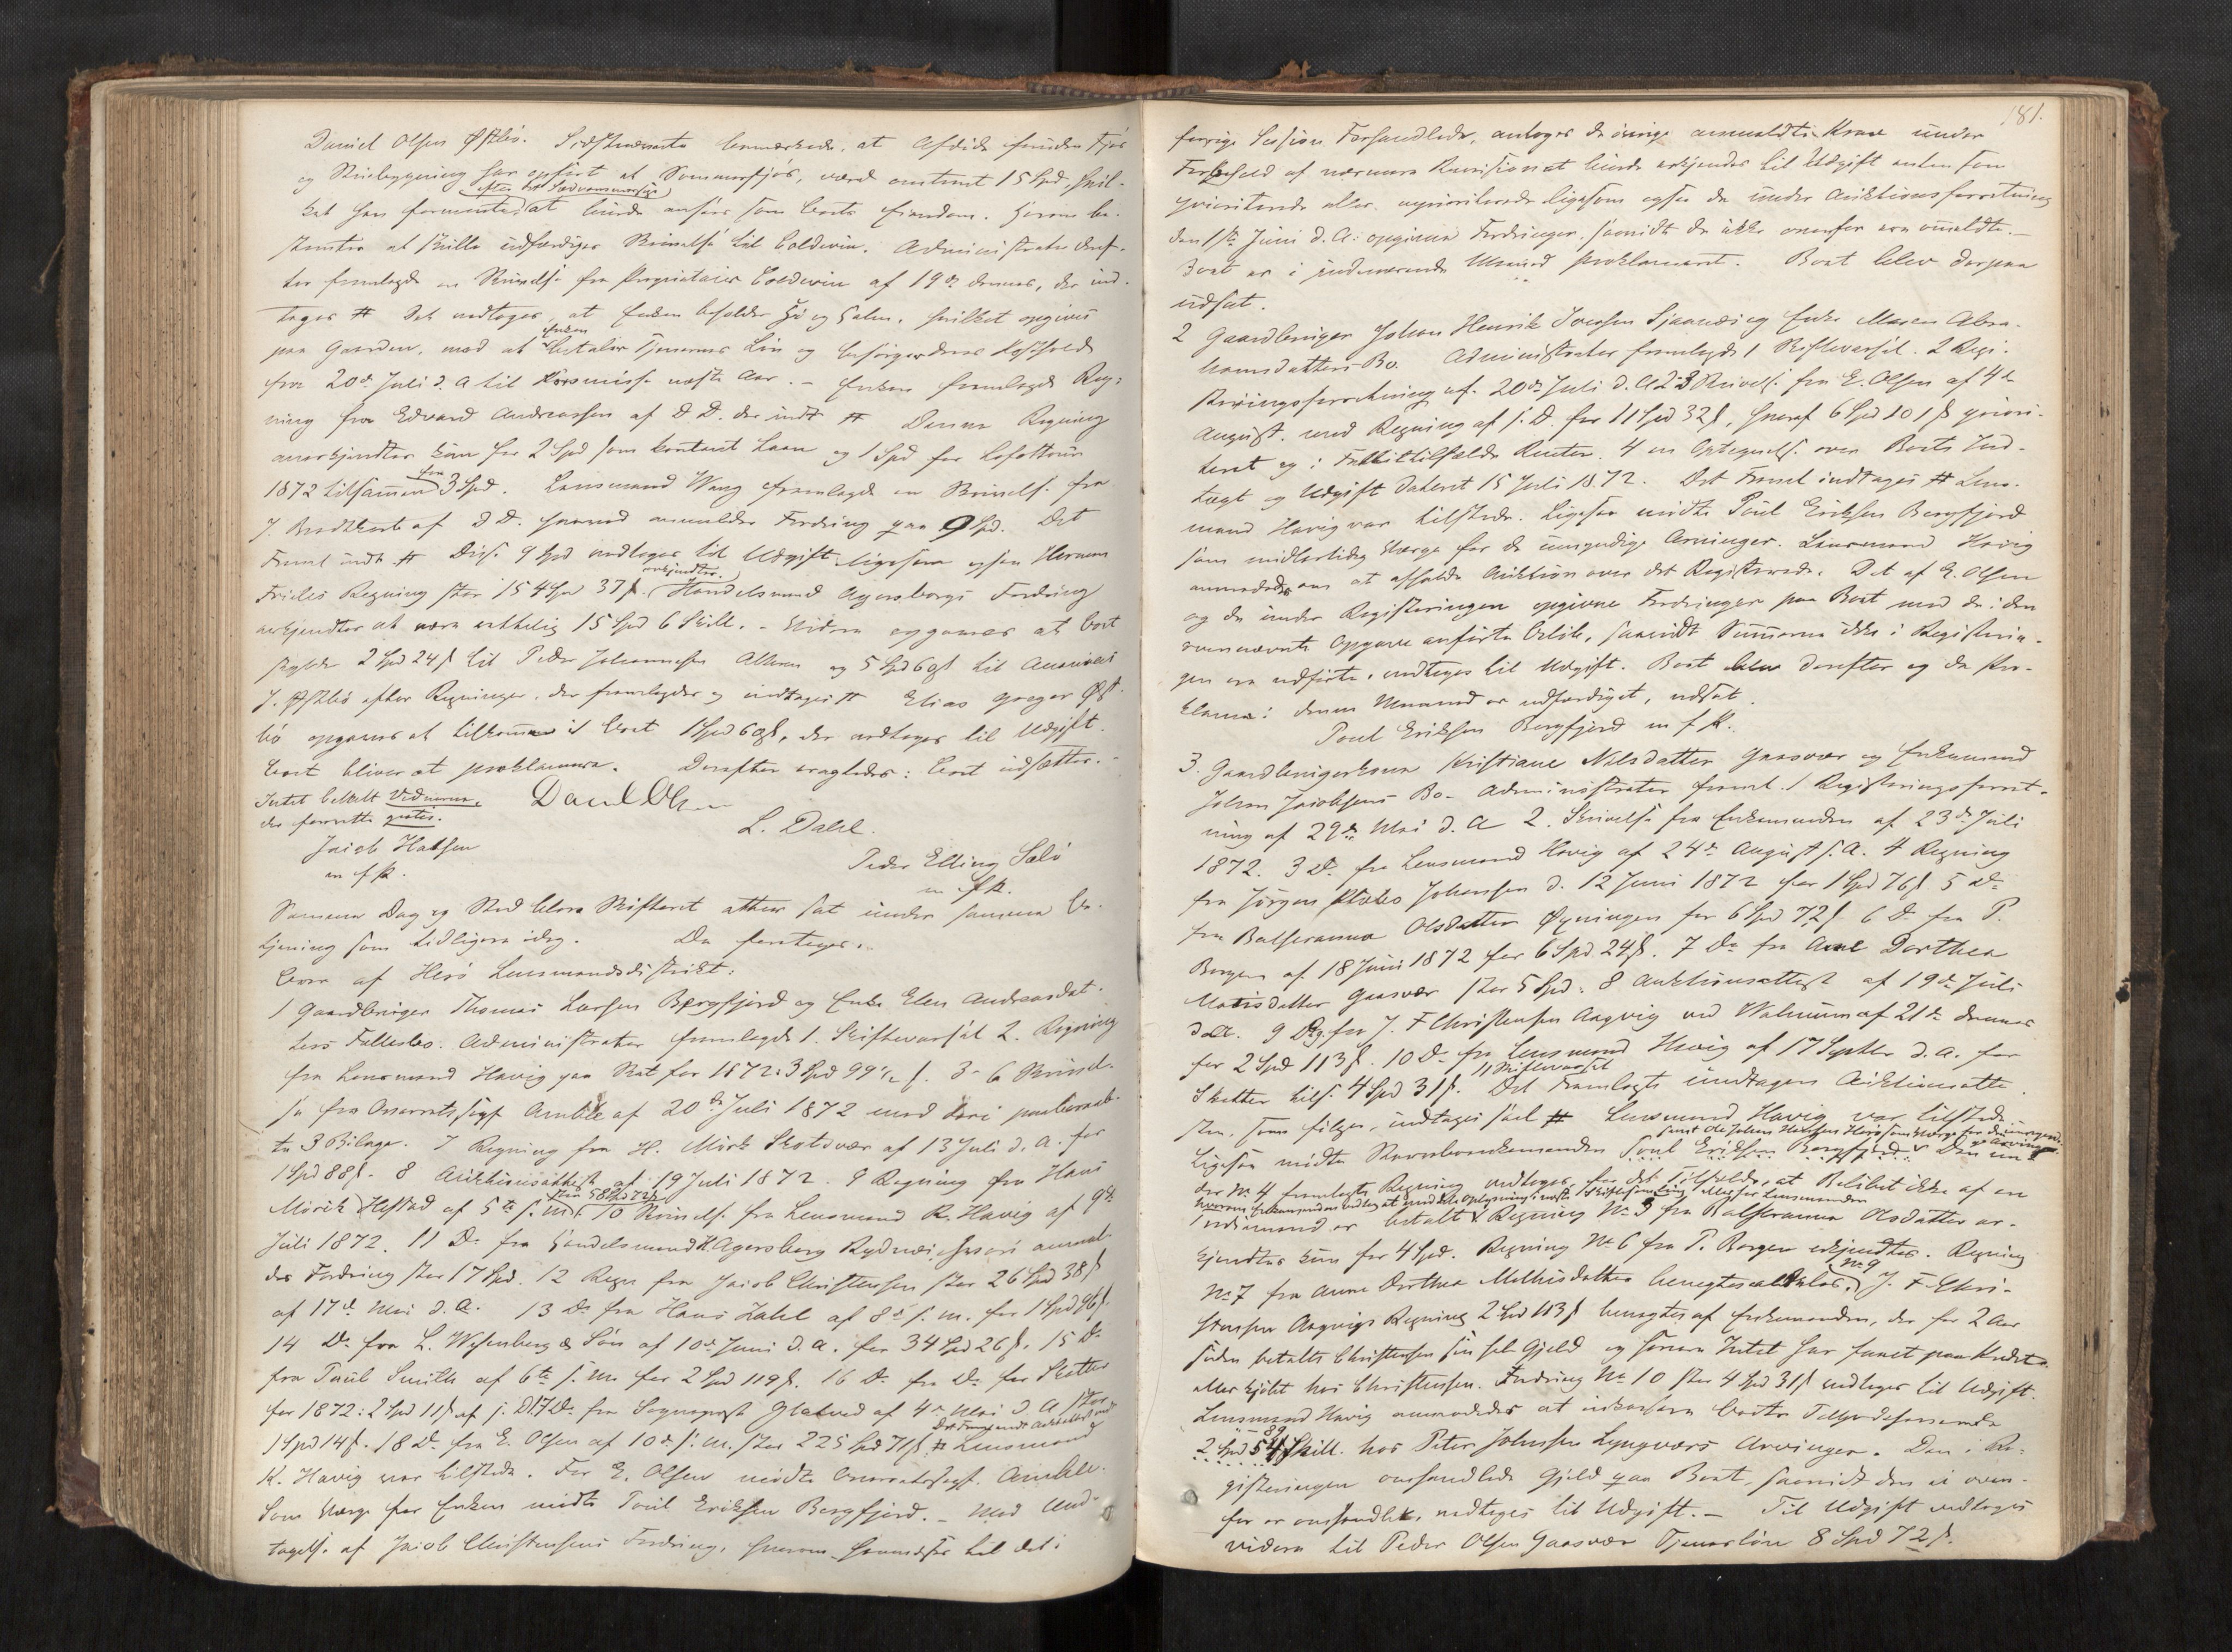 Daniel Olsen Østbø. Sidstnævnte bemærkede, at Afdøde foruden Fjøs
og har opført et Sommerfjøs, værd omtrent 15 Spd, hvil-
efter 
ket han formente at burde anføres som Boets Eiendom. Herom be-
sluttedes at skulle udfærdiges Skrivelse til Coldevin. Administrator deref-
ter fremlagde en Skrivelse fra Proprietair Coldevin af 19de dennes, der ind-
tages # Det vedtoges, at Enken beholder Hø og Halm, hvilket opgives
Enken
paa Gaarden, mod at betaler Tjenernes Løn og besørger deres Kosthold
fra 20de Juli d. A til Korsmisse næste Aar. – Enken fremlagde Reg-
ning fra Edvard Andreassen af D D. der indt # Denne Regning
anerkjendtes kun for 2 Spd som kontant Laan og 1 Spd for Lofottour
for
1872 tilsammen 3 Spd. Lensmand Wang fremlagde en Skrivelse fra
J. af D D. hvorved anmeldes Fordring paa 9 Spd. Det
Freml indt # Disse 9 Spd vedtoges til Udgift ligesom ogsaa Herman
erkjendtes
Frieles Regning stor 154 Spd 37 ß. Handelsmand Agersborgs Fordring
erkjendtes at være rettelig 15 Spd 6 Skill. – Videre opgaves at Boet
skylder 2 Spd 24 ß til Peder Johannesen og 5 Spd 60 ß til
J. Østbø efter Regninger, der fremlagdes og indtages # Elias Gregar Øst-
bø opgaves at tilkomme i Boet 1 Spd 60 ß, der vedtoges til Udgift.
Boet bliver at proklamere. Derefter eragtedes: Boet udsættes.
Intet betalt Vidnerne,
der forrette gratis.
Daniel Olsen
L. Dahl.
Jacob Hansen
m f P.
Peder Elling Sælø
m f P.
Samme Dag og Sted blev Skifteret atter sat under samme Be-
tjening som tidligere idag. Da foretoges:
Boer af Herø Lensmandsdistrikt:
1 Gaardbruger Thomas Larsen Bergfjord og Enke Elen Andreasdat-
ters Fællesbo. Administrator fremlagde 1. Skiftevarsel 2. Regning
fra Lensmand Havig paa Skat for 1872: 3 Spd 99½ ß. 3–6 Skrivel-
se fra Overretssagf Amble af 20de Juli 1872 med deri paaberaab-
te 3 Bilage. 7 Regning fra H. Mörk Skotsvær af 13 Juli d. A. for
1 Spd 88 ß. 8 Auktionsattest af 19 Juli 1872. 9 Regning fra Hans
stor 58 Spd 72 ß
Mörck Hestad af 5te s. M. 10 Skrivelse fra Lensmand K. Havig af 9de
Juli 1872. 11 Do fra Handelsmand K. Agersborg Rydnæi hvori anmel-
des Fordring stor 17 Spd. 12 Regn fra Jacob Christensen stor 26 Spd 38 ß
af 17de Mai d. A. 13 Do fra Hans Zahl af 8de s. M. for 1 Spd 96 ß.
14 Do fra L. Wesenberg & Søn af 10de Juni d. A. for 34 Spd 26 ß. 15 Do
fra Paul Smith af 6te s. M. for 2 Spd 119 ß. 16 Do fra Do for Skatter
for 1872: 2 Spd 11 ß af s. D. 17 Do fra Sogneprest Glatved af 4de Mai d. A stor
1 Spd 14 ß. 18 Do fra E. Olsen af 10de s. M. stor 225 Spd 71 ß # Lensmand
K. Havig var tilstede. For E. Olsen mødte Overretssagf. Amble.
Som Værge for Enken mødte Poul Eriksen Bergfjord. – Med Und-
tagelse af Jacob Christensens Fordring, hvorom henvises til det i
181.
forrige Session Forhandlede, antoges de øvrige anmeldte Krav under
Forbehold af nærmere Revision at burde erkjendes til Udgift enten som
prioriterede eller uprioriterede ligesom ogsaa de under Auktionsforretning
den 1ste Juni d. A: opgivne Fordringer, saavidt de ikke ovenfor ere anmeldte. –
Boet er i indeværende Maaned proklameret. Boet blev derpaa
udsat.
2 Gaardbruger Johan Henrik Iversen Sjaanæs og Enke Maren Abra-
hamsdatters Bo. Administrator fremlagde 1 Skiftevarsel. 2 Regi-
streringsforretning af 20de Juli d. A 3 Skrivelse fra E. Olsen af 4de
August. med Regning af s. D. for 11 Spd 32 ß, hvoraf 6 Spd 101 ß priori-
teret og i Fallittilfælde Renter. 4 en Optegnelse over Boets Ind-
tægt og Udgift dateret 15 Juli 1872. Det Freml indtages # Lens-
mand Havig var tilstede. Ligesaa mødte Poul Eriksen Bergfjord
som midlertidig Værge for de umyndige Arvinger. Lensmand Havig
anmodedes om at afholde Auktion over det Registrerede. Det af E. Olsen
og de under Registreringen opgivne Fordringer paa Boet med de i den
ovennævnte Opgave anførte Beløb, saavidt Summerne ikke i Registrerin-
gen ere udførte, vedtoges til Udgift. Boet blev derefter og da Pro-
klama i denne Maaned er udfærdiget, udsat.
Poul Eriksen Bergfjord m f P.
3. Gaardbrugerkone Kristiane Nilsdatter Gaasvær og Enkemand
Johan Jacobsens Bo – Administrator freml. 1 Registreringsforret-
ning af 29de Mai d. A 2. Skrivelse fra Enkemanden af 23de Juli
1872. 3 Do. fra Lensmand Havig af 24de August s. A. 4 Regning
fra Jørgen Johansen d. 12 Juni 1872 for 1 Spd 76 ß 5 Do
fra Balseranna Olsdatter Øyningen for 6 Spd 72 ß. 6 Do fra P.
Borgen af 18 Juni 1872 for 6 Spd 24 ß. 7 Do fra Ane Dorthea
Mathisdatter Gaasvær stor 5 Spd. 8 Auktionsattest af 19de Juli
d A. 9 Rg. fra J. F Christensen Aagvig ved Walnum af 21de dennes
for 2 Spd 113 ß. 10 Do fra Lensmand Havig af 17 Septbr d. A. for
11 Skiftevarsel
Skatter tils. 4 Spd 31 ß. Det Fremlagte undtagen Auktionsatte-
sten, som følger, indtages saal # Lensmand Havig var tilstede
samt Ole Johan Hansen Herø som Værge for de umyndi-
ge Arvinger
Ligesaa mødte Enkemanden Poul Eriksen Bergfjord. Den un-
der No 4 fremlagte Regning vedtoges, for det Tilfælde, at Beløbet ikke af en
Nordmand er betalt Regning No 5 fra Balseranna Olsdatter er-
kjendtes kun for 4 Spd. Regning No 6 fra P. Borgen erkjendtes. Regning
No 9
No 7 fra Anne Dorthea Mathisdatter benegtes aldeles. J. F. Chri-
stensen Aagvigs Regning 2 Spd 113 ß benegtes af Enkemanden, der for 2 Aar
siden betalte Christensen sin hele Gjeld og senere Intet har faaet paa Kredit
eller kjøbt hos Christensen. Fordring No 10 stor 4 Spd 31 ß vedtoges til Udgift.
Lensmand Havig anmodedes at inkassere Boets Tilgodehavende
89
2 Spd 54 Skill. hos Peter Johnsen Lyngværs Arvinger. Den i Re-
gistreringen omhandlede Gjeld paa Boet, saavidt den ei oven-
for er omhandlet, vedtoges til Udgift. – Til Udgift vedtoges
videre til Peder Olsen Gaasvær Tjenerløn 8 Spd 72 ß.